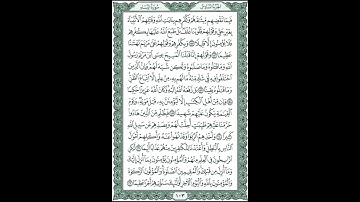 الجزء السادس سورة النساء
فَبِمَا نَقْضِهِم مِّيثَٰقَهُمْ وَكُفْرِهِم بِـَٔايَٰتِ ٱللَّهِ وَقَتْلِهِمُ ٱلْأَنۢبِيَآءَ
بِغَيْرِ حَقٍّ وَقَوْلِهِمْ قُلُوبُنَا غُلْفٌۢ بَلْ طَبَعَ ٱللَّهُ عَلَيْهَا بِكُفْرِهِمْ
فَلَا يُؤْمِنُونَ إِلَّا قَلِيلًا ١٥٥ وَبِكُفْرِهِمْ وَقَوْلِهِمْ عَلَىٰ مَرْيَمَ بُهْتَٰنًا
عَظِيمًا ١٥٦ وَقَوْلِهِمْ إِنَّا قَتَلْنَا ٱلْمَسِيحَ عِيسَى ٱبْنَ مَرْيَمَ رَسُولَ
ٱللَّهِ وَمَا قَتَلُوهُ وَمَا صَلَبُوهُ وَلَٰكِن شُبِّهَ لَهُمْ وَإِنَّ ٱلَّذِينَ
ٱخْتَلَفُوا۟ فِيهِ لَفِى شَكٍّ مِّنْهُ مَا لَهُم بِهِۦ مِنْ عِلْمٍ إِلَّا ٱتِّبَاعَ ٱلظَّنِّ
وَمَا قَتَلُوهُ يَقِينًۢا ١٥٧ بَل رَّفَعَهُ ٱللَّهُ إِلَيْهِ وَكَانَ ٱللَّهُ عَزِيزًا حَكِيمًا
١٥٨ وَإِن مِّنْ أَهْلِ ٱلْكِتَٰبِ إِلَّا لَيُؤْمِنَنَّ بِهِۦ قَبْلَ مَوْتِهِۦ وَيَوْمَ
ٱلْقِيَٰمَةِ يَكُونُ عَلَيْهِمْ شَهِيدًا ١٥٩ فَبِظُلْمٍ مِّنَ ٱلَّذِينَ هَادُوا۟
حَرَّمْنَا عَلَيْهِمْ طَيِّبَٰتٍ أُحِلَّتْ لَهُمْ وَبِصَدِّهِمْ عَن سَبِيلِ ٱللَّهِ
كَثِيرًا ١٦٠ وَأَخْذِهِمُ ٱلرِّبَوٰا۟ وَقَدْ نُهُوا۟ عَنْهُ وَأَكْلِهِمْ أَمْوَٰلَ
ٱلنَّاسِ بِٱلْبَٰطِلِ وَأَعْتَدْنَا لِلْكَٰفِرِينَ مِنْهُمْ عَذَابًا أَلِيمًا ١٦١ لَّٰكِنِ
ٱلرَّٰسِخُونَ فِى ٱلْعِلْمِ مِنْهُمْ وَٱلْمُؤْمِنُونَ يُؤْمِنُونَ بِمَآ أُنزِلَ إِلَيْكَ
وَمَآ أُنزِلَ مِن قَبْلِكَ وَٱلْمُقِيمِينَ ٱلصَّلَوٰةَ وَٱلْمُؤْتُونَ ٱلزَّكَوٰةَ
وَٱلْمُؤْمِنُونَ بِٱللَّهِ وَٱلْيَوْمِ ٱلْـَٔاخِرِ أُو۟لَٰٓئِكَ سَنُؤْتِيهِمْ أَجْرًا عَظِيمًا ١٦٢
١٠٣